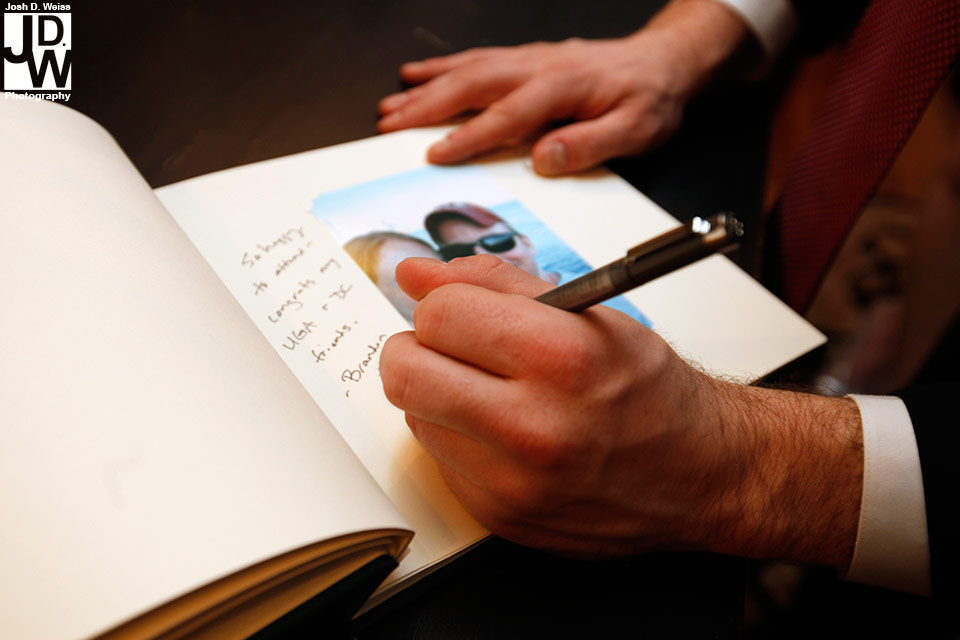 Josh D. Weiss
JD.W
Photography
So happy
to attend -
congrats my
UGA + DC
friends.
- Brandon